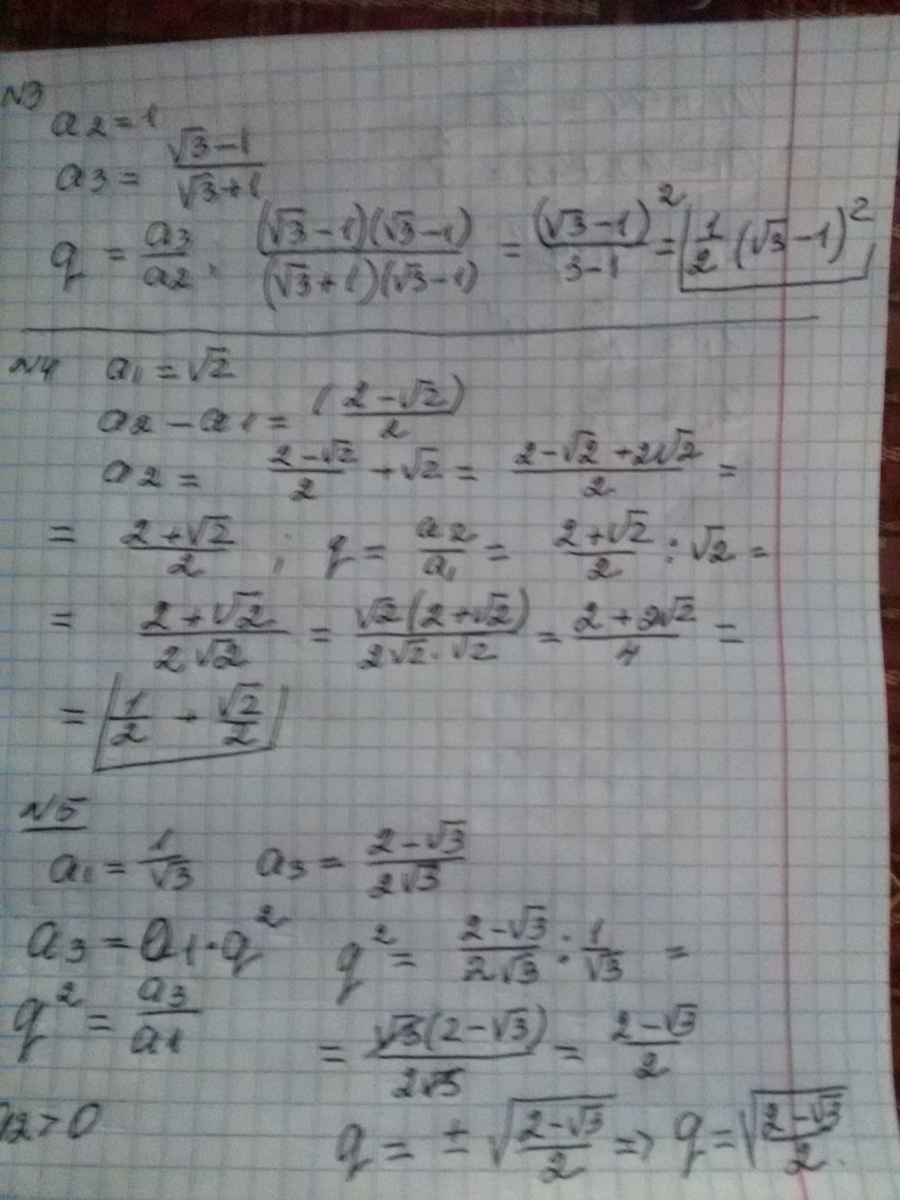 №3
a₂ = 1
a₃ = (√3 − 1)/(√3 + 1)
q = a₃/a₂ , ((√3 − 1)(√3 − 1))/((√3 + 1)(√3 − 1)) = (√3 − 1)²/(3 − 1) = 1/2 (√3 − 1)²
№4 a₁ = √2
a₂ − a₁ = (2 − √2)/2
a₂ = (2 − √2)/2 + √2 = (2 − √2 + 2√2)/2 =
= (2 + √2)/2 ; q = a₂/a₁ = (2 + √2)/2 : √2 =
= (2 + √2)/(2√2) = (√2(2 + √2))/(2√2 · √2) = (2 + 2√2)/4 =
= 1/2 + √2/2
№5
a₁ = 1/√3 a₃ = (2 − √3)/(2√3)
a₃ = a₁ · q² q² = (2 − √3)/(2√3) : 1/√3 =
q² = a₃/a₁ = (√3(2 − √3))/(2√3) = (2 − √3)/2
a₂ > 0 q = ± √((2 − √3)/2) ⇒ q = √((2 − √3)/2).